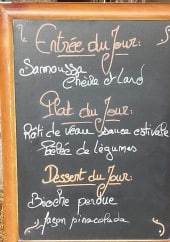 Entrée du Jour:
Samoussa
Chèvre et Lard
Plat du Jour:
Rôti de veau sauce estivale
Poêlée de légumes
Dessert du Jour:
Brioche perdue
façon pinacolada